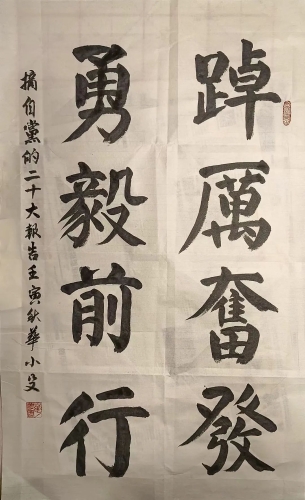 踔厲奮發
勇毅前行
摘自黨的二十大報告壬寅秋華小